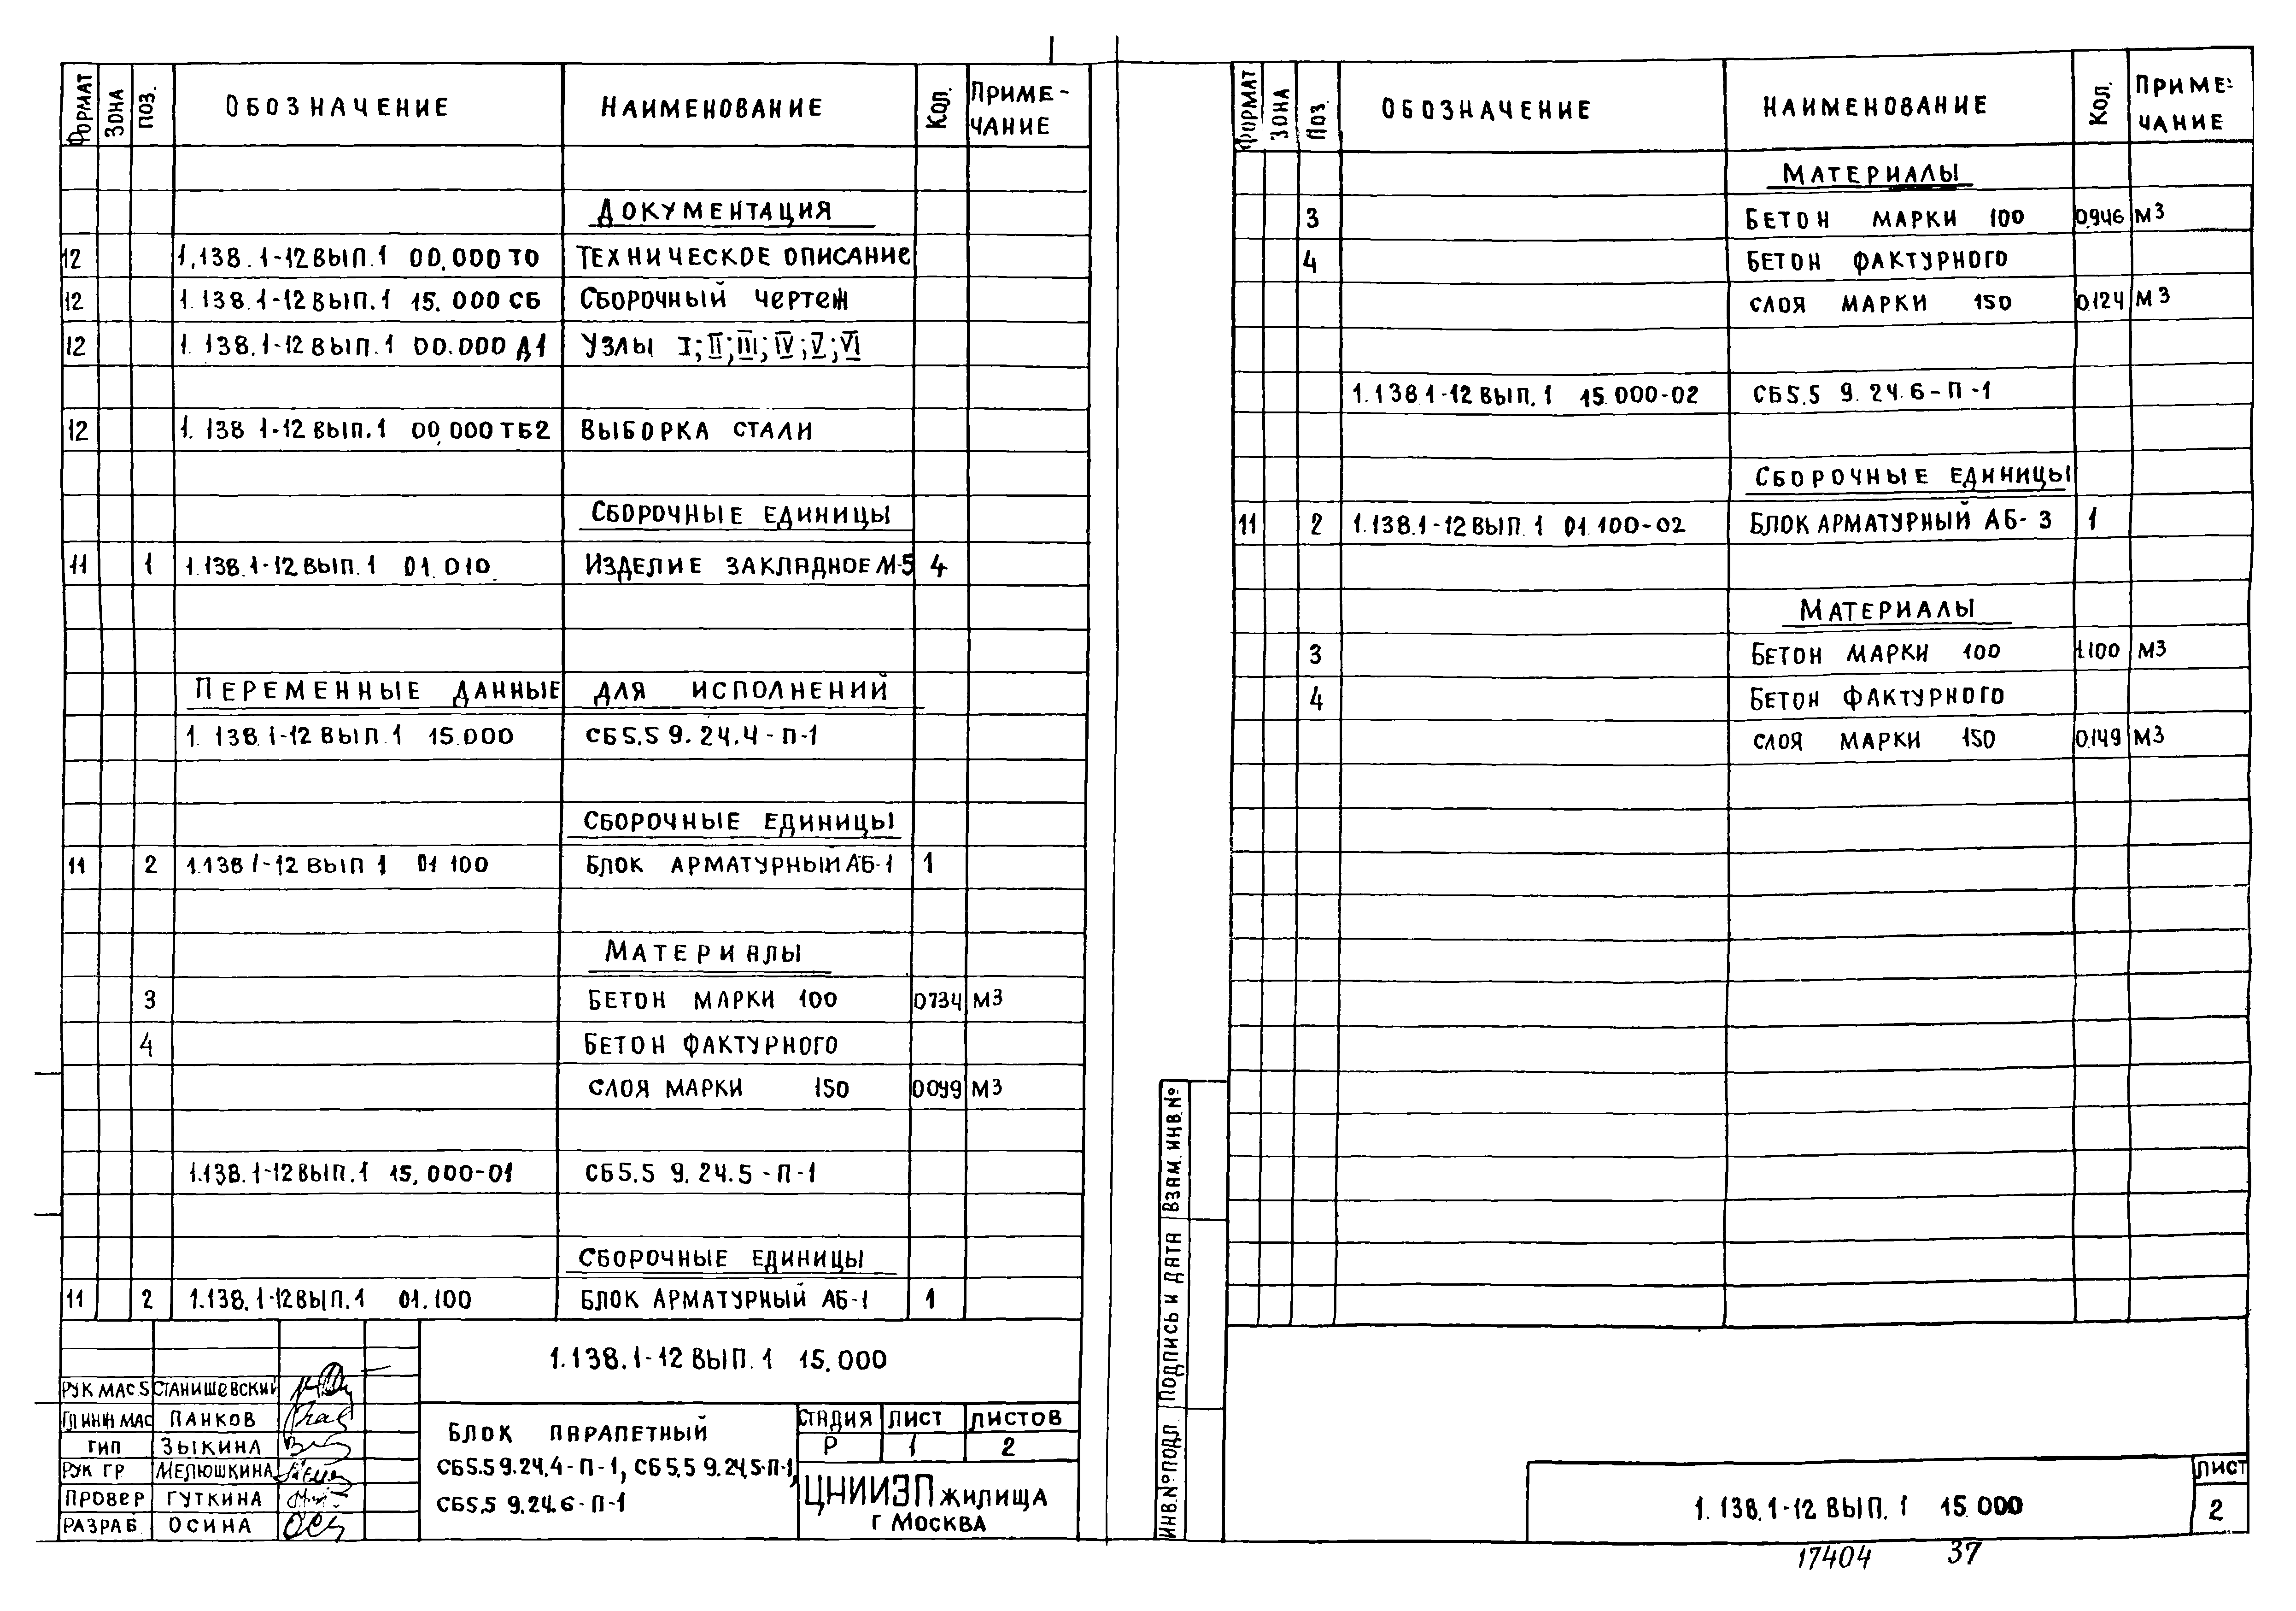 ФОРМАТ ЗОНА ПОЗ. ОБОЗНАЧЕНИЕ НАИМЕНОВАНИЕ КОЛ. ПРИМЕ-
ЧАНИЕ
ДОКУМЕНТАЦИЯ
12 1.138.1-12 ВЫП.1 00.000 ТО ТЕХНИЧЕСКОЕ ОПИСАНИЕ
12 1.138.1-12 ВЫП.1 15.000 СБ СБОРОЧНЫЙ ЧЕРТЕЖ
12 1.138.1-12 ВЫП.1 00.000 Д1 УЗЛЫ I; II; III; IV; V; VI
12 1.138 1-12 ВЫП.1 00.000 ТБ2 ВЫБОРКА СТАЛИ
СБОРОЧНЫЕ ЕДИНИЦЫ
11 1 1.138.1-12 ВЫП.1 01.010 ИЗДЕЛИЕ ЗАКЛАДНОЕ М-5 4
ПЕРЕМЕННЫЕ ДАННЫЕ ДЛЯ ИСПОЛНЕНИЙ
1.138.1-12 ВЫП.1 15.000 СБ5.5 9.24.4-П-1
СБОРОЧНЫЕ ЕДИНИЦЫ
11 2 1.138 1-12 ВЫП 1 01 100 БЛОК АРМАТУРНЫЙ АБ-1 1
МАТЕРИАЛЫ
3 БЕТОН МАРКИ 100 0734 М3
4 БЕТОН ФАКТУРНОГО
СЛОЯ МАРКИ 150 0099 М3
1.138.1-12 ВЫП.1 15.000-01 СБ5.5 9.24.5-П-1
СБОРОЧНЫЕ ЕДИНИЦЫ
11 2 1.138.1-12 ВЫП.1 01.100 БЛОК АРМАТУРНЫЙ АБ-1 1
1.138.1-12 ВЫП.1 15.000
РУК МАС 5 СТАНИШЕВСКИЙ
ГЛ ИНЖ МАС ПАНКОВ
ГИП ЗЫКИНА
РУК ГР МЕЛЮШКИНА
ПРОВЕР ГУТКИНА
РАЗРАБ. ОСИНА
БЛОК ПАРАПЕТНЫЙ
СБ5.5 9.24.4-П-1, СБ5.5 9.24.5-П-1,
СБ5.5 9.24.6-П-1
СТАДИЯ ЛИСТ ЛИСТОВ
Р 1 2
ЦНИИЭП ЖИЛИЩА
Г МОСКВА
ФОРМАТ ЗОНА ПОЗ. ОБОЗНАЧЕНИЕ НАИМЕНОВАНИЕ КОЛ. ПРИМЕ-
ЧАНИЕ
МАТЕРИАЛЫ
3 БЕТОН МАРКИ 100 0.946 М3
4 БЕТОН ФАКТУРНОГО
СЛОЯ МАРКИ 150 0.124 М3
1.138.1-12 ВЫП.1 15.000-02 СБ5.5 9.24.6-П-1
СБОРОЧНЫЕ ЕДИНИЦЫ
11 2 1.138.1-12 ВЫП.1 01.100-02 БЛОК АРМАТУРНЫЙ АБ-3 1
МАТЕРИАЛЫ
3 БЕТОН МАРКИ 100 1.100 М3
4 БЕТОН ФАКТУРНОГО
СЛОЯ МАРКИ 150 0.149 М3
ИНВ.№ПОДЛ. ПОДПИСЬ И ДАТА ВЗАМ.ИНВ.№
1.138.1-12 ВЫП.1 15.000
ЛИСТ
2
17404 37